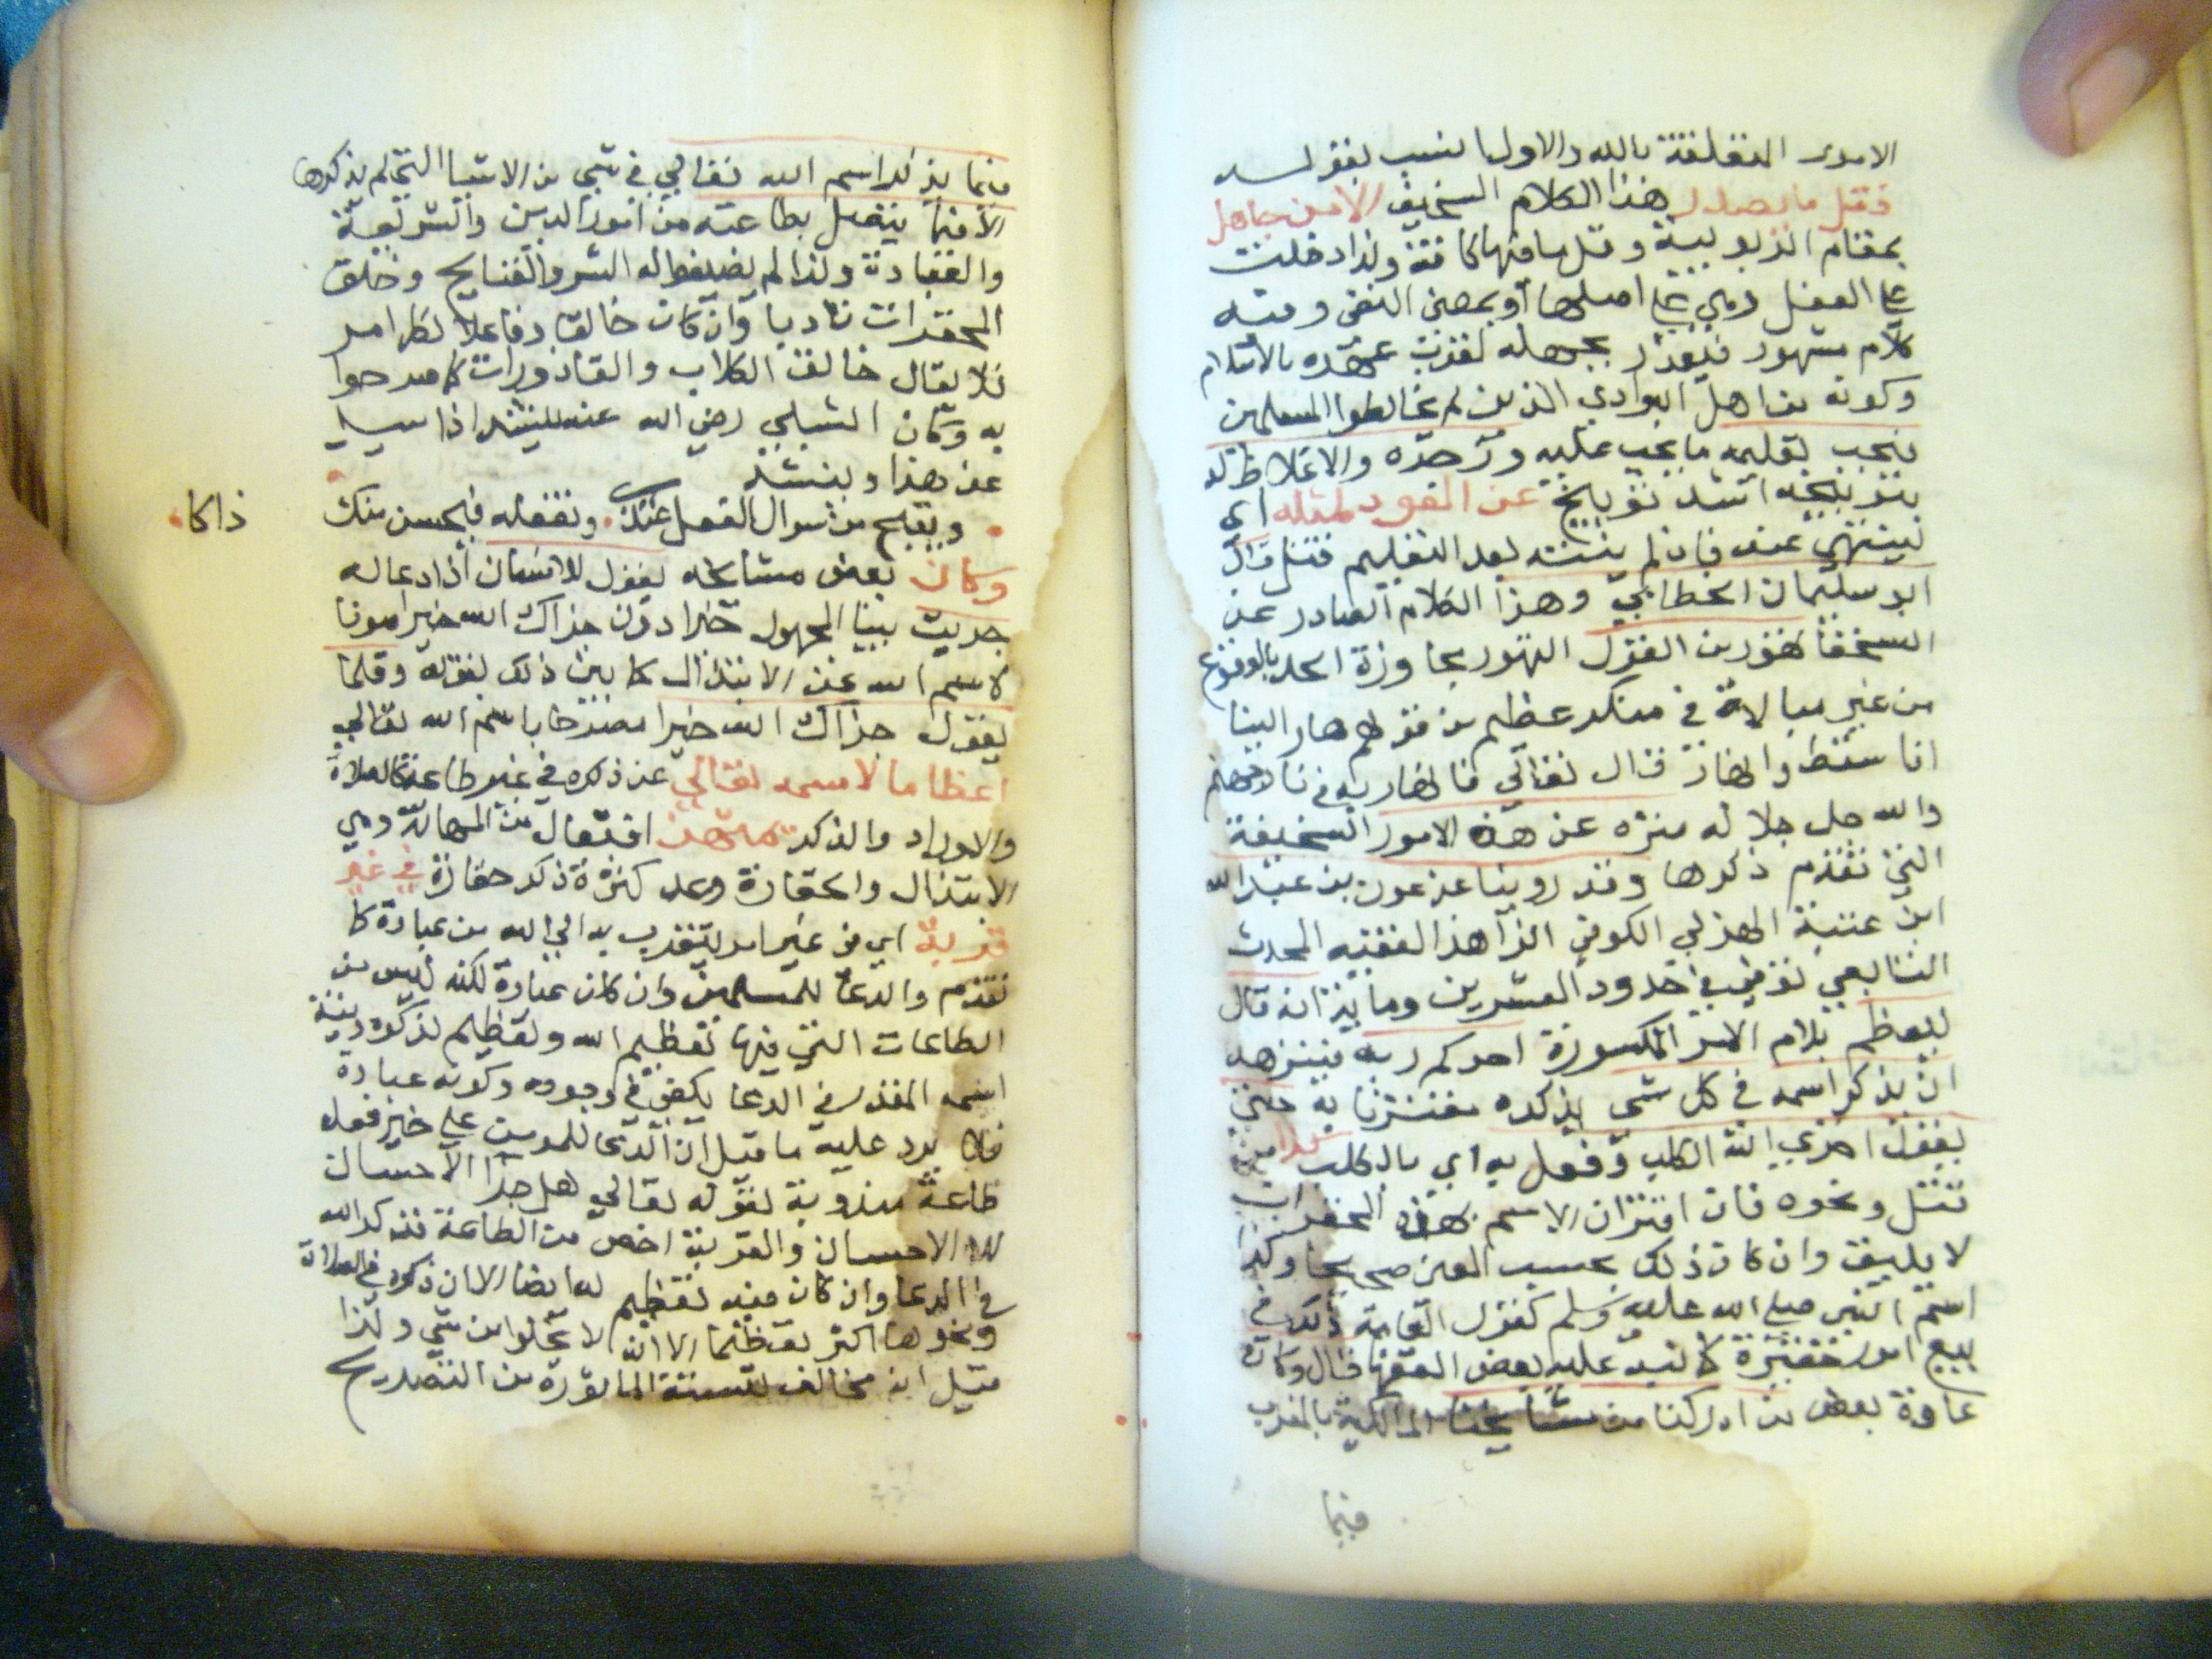 الامور المتعلقة بالله والاولى انسب بقوله
فقل ما يصدر هذا الكلام السخيف الا من جاهل
بمقام الربوبية وقل ما فيها كافة ولذا دخلت
على الفعل وهي على اصلها او بمعنى النفي ومنه
كلام مشهور فيعذر بجهله لقرب عهده بالاسلام
وكونه من اهل البوادي الذين لم يخالطوا المسلمين
فيجب تعليمه ما يجب عليه وزجره والاغلاظ له
بتوبيخه اشد توبيخ عن العود لمثله اي
لينتهي عنه فان لم ينته بعد التعليم قتل قال
ابو سليمان الخطابي وهذا الكلام الصادر عن
السخفا تهور من القول التهور مجاوزة الحد بالوقوع
من غير مبالاة في منكر عظيم من قولهم هار البنا
اذا سقط وانهار قال تعالى فانهار به في نار جهنم
والله جل جلاله منزه عن هذه الامور السخيفة
التي تقدم ذكرها وقد روينا عن عون بن عبد الله
ابن عتبة الهذلي الكوفي الزاهد الفقيه المحدث
التابعي توفي في حدود العشرين وماية انه قال
ليعظم بلام الامر المكسورة احدكم ربه بتنزهه
ان يذكر اسمه في كل شي يذكره مقترنا به حتى
يقول اخزى الله الكلب وفعل به اي بالكلب كذا من
قتل ونحوه فان اقتران الاسم بهذه المحقرات
لا يليق وان كان ذلك بحسب المعنى صحيحا وكذا
اسم النبي صلى الله عليه وسلم كقول العامة ذلك في
بيع امور حقيرة كما نبه عليه بعض الفقها قال وكان
عادة بعض من ادركنا من مشايخنا المالكية بالمغرب
فيما
فيما يذكر اسم الله تعالى في شي من الاشيا التي لم يذكرها
الا فيما يتصل بطاعته من امور الدين والشريعة
والعبادة ولذا لم يضيفوا له الشر والقبايح وخلق
المحقرات تادبا وان كان خالقا وفاعلا لكل امر
فلا يقال خالق الكلاب والقاذورات كما صرحوا
به وكان الشبلي رضي الله عنه ينشد اذا سيل
عن هذا وينشد
ويقبح من سوال الفعل عندي . وتفعله فيحسن منك
ذاكا
وكان بعض مشايخه يقول للانسان اذا دعا له
جزيت ببنا المجهول خيرا دون جزاك الله خيرا صونا
لاسم الله عن الابتذال كما بين ذلك بقوله وقلما
يقول جزاك الله خيرا مصرحا باسم الله تعالى
اعظاما لاسمه تعالى عن ذكره في غير طاعته كالصلاة
والاوراد والذكر يمتهن افتعال من المهانة وهي
الابتذال والحقارة وعد كثرة ذكر حقارة في غير
قربة اي في غير امر يتقرب به الى الله من عبادة كما
تقدم والدعا للمسلمين وان كان عبادة لكنه ليس من
الطاعات التي فيها تعظيم الله وتعظيم لذكره ونية
اسمه المقدر في الدعا يكفي في وجوده وكونه عبادة
فلا يرد عليه ما قيل ان الدعى للمومن على خير فعله
طاعة مندوبة لقوله تعالى هل جزا الاحسان
الا الاحسان والقربة اخص من الطاعة فذكر الله
في الدعا وان كان فيه تعظيم له ايضا الا ان ذكره في الصلاة
ونحوها اكثر تعظيما الا انه لا يخلوا من شي ولذا
قيل انه مخالف للسنة الماثورة من التصريح